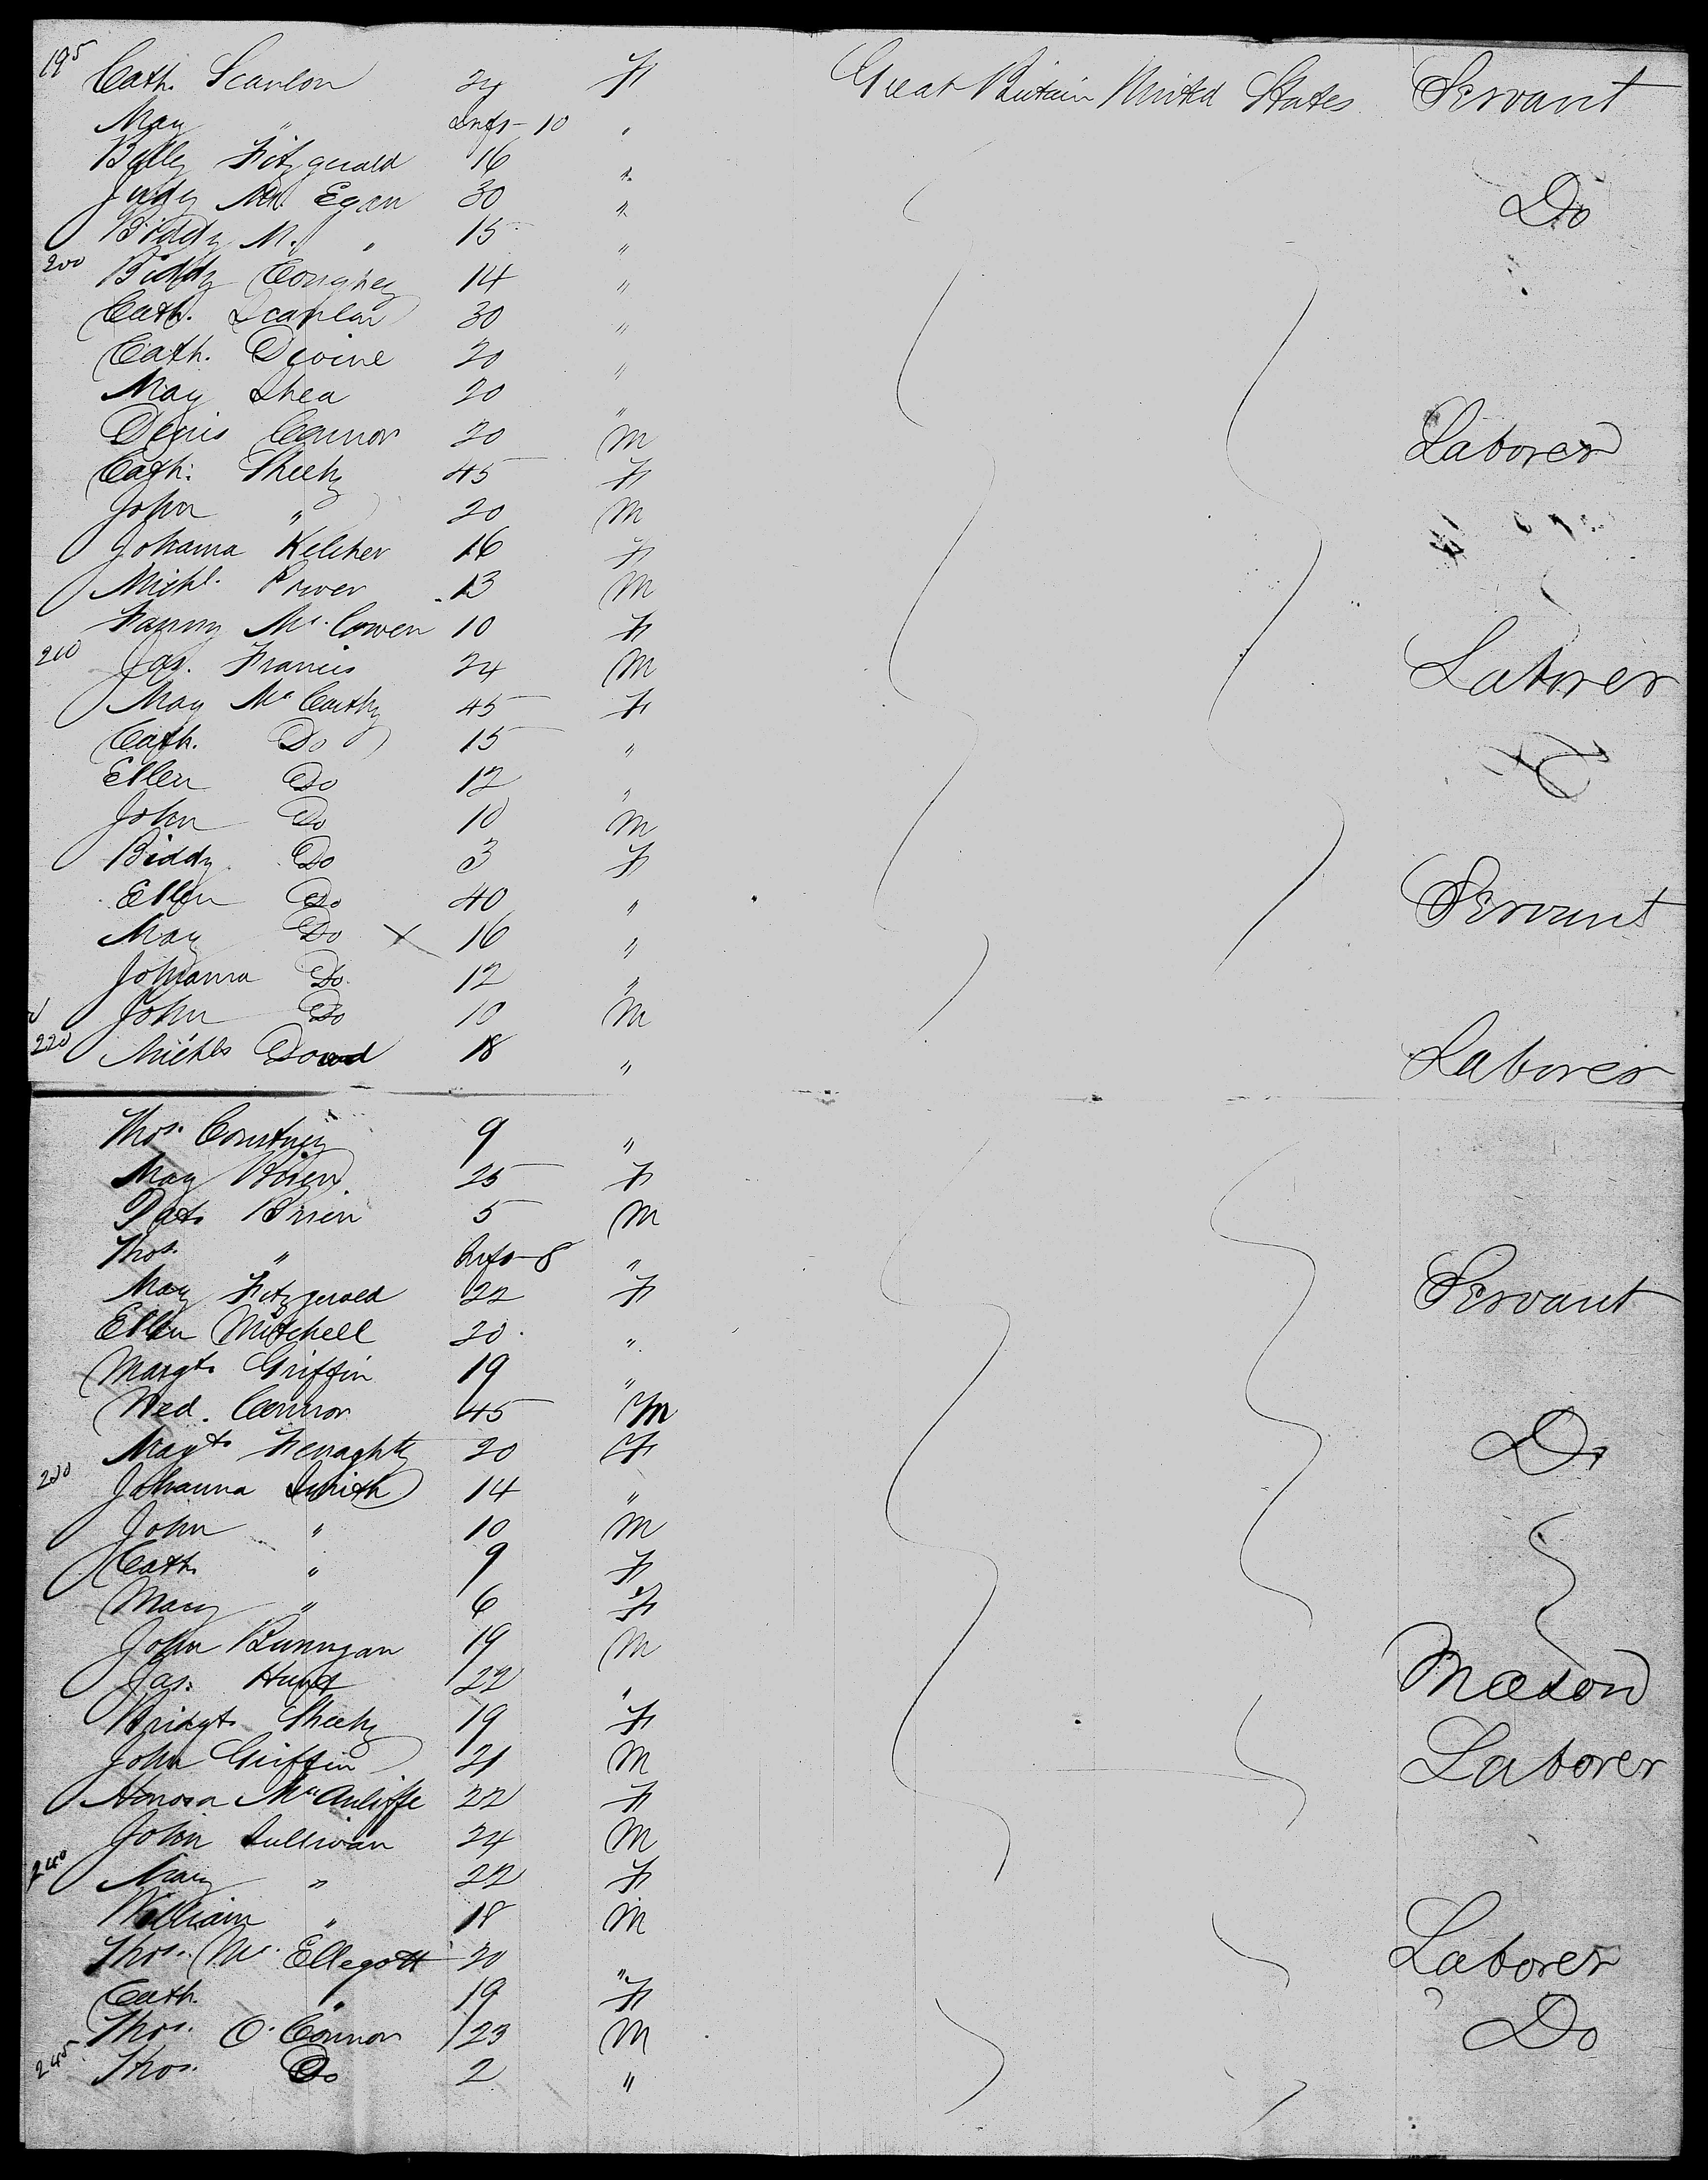 195 Cath. Scanlon 24 F Great Britain United States Servant
May " Inft - 10 "
Billy Fitzgerald 16 "
Judy Mc. Egan 30 " Do
Biddy M. " 15 "
200 Biddy 14 "
Cath. Scanlon 30 "
Cath. Divine 20 "
May Shea 20 "
Denis Connor 20 M Laborer
Cath. Sheehy 45 F
John " 20 M
Johanna Kelcher 16 F
Michl. Power 13 M
Fanny Mc. Cowen 10 F
210 Jas. Francis 24 M Laborer
May Mc Carthy 45 F
Cath. Do 15 "
Ellen Do 12 "
John Do 10 M
Biddy Do 3 F
Ellen Do 40 " Servant
May Do X 16 "
Johanna Do 12 "
John Do 10 M
220 Michls Dowd 18 " Laborer
Thos. Courtney 9 "
May Brien 25 F
Pat. Brien 5 M
Thos. " Inft - 8 "
May Fitzgerald 22 F Servant
Ellen Mitchell 20 "
Margt. Griffin 19 "
Ned. Connor 45 M Do
Margt. Fenaghty 20 F
230 Johanna Smith 14 "
John " 10 M
Cath " 9 F
Mary " 6 F
John Bunnyan 19 M Mason
Jas. Hunt 22 "
Bridgt. Sheehy 19 F
John Griffin 21 M Laborer
Honora McAuliffe 22 F
John Sullivan 24 M
240 Mary " 22 F
William " 18 M
Thos. Mc. Ellegott 20 " Laborer
Cath. " 19 F
Thos. O. Connor 23 M Do
245 Thos. Do 2 "